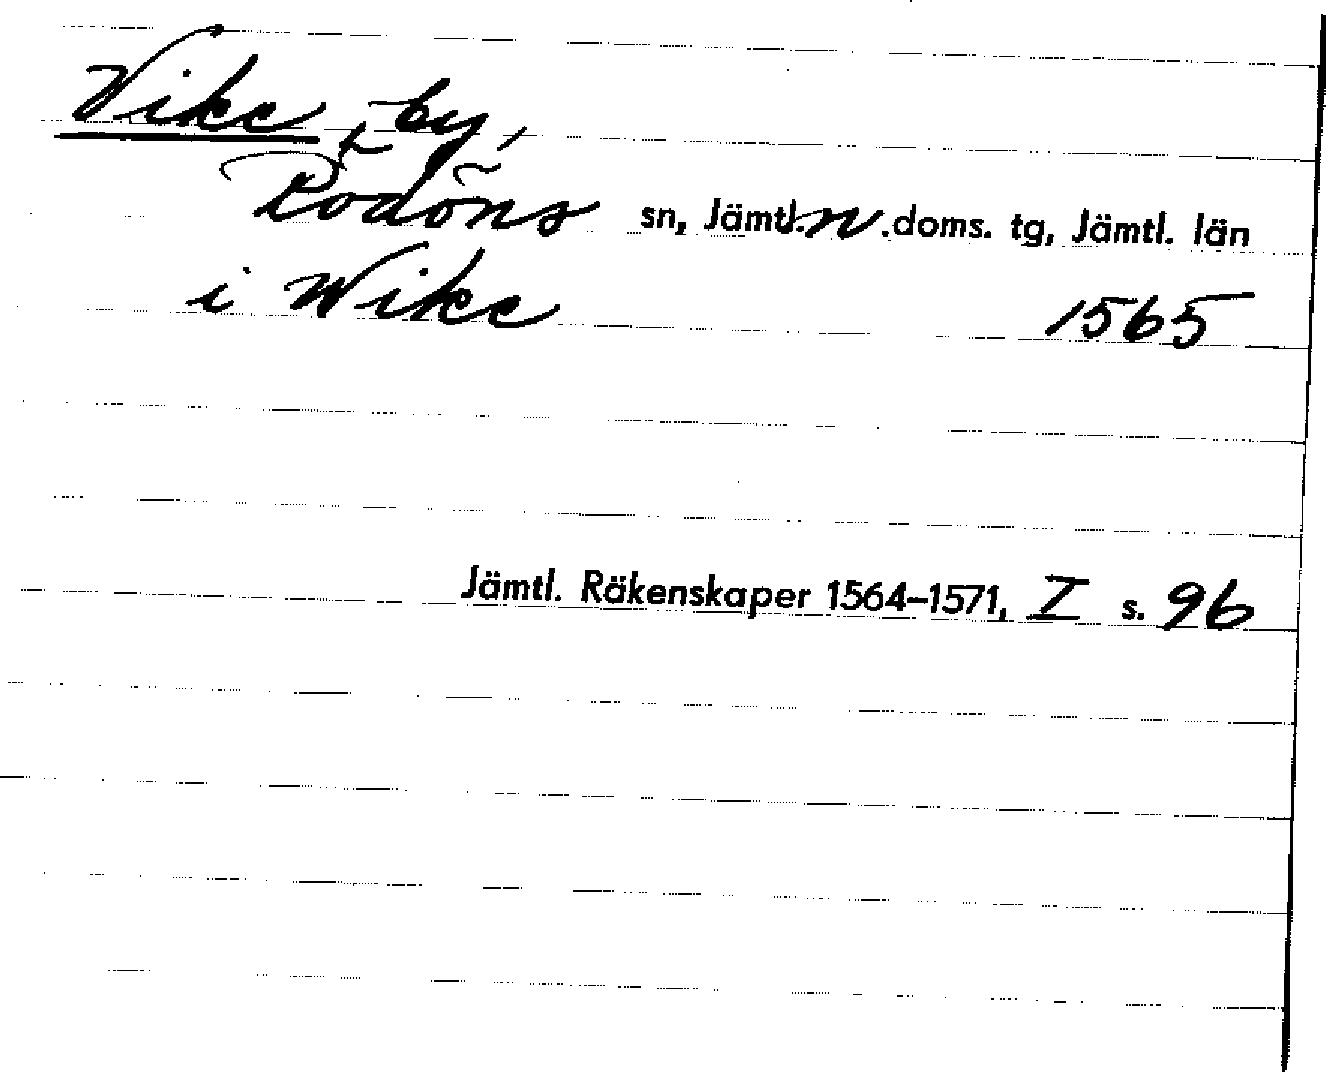 Vike, by,
Rödöns sn, Jämtl. n. doms. tg, Jämtl. län
i Wike 1565
Jämtl. Räkenskaper 1564-1571, I s. 96